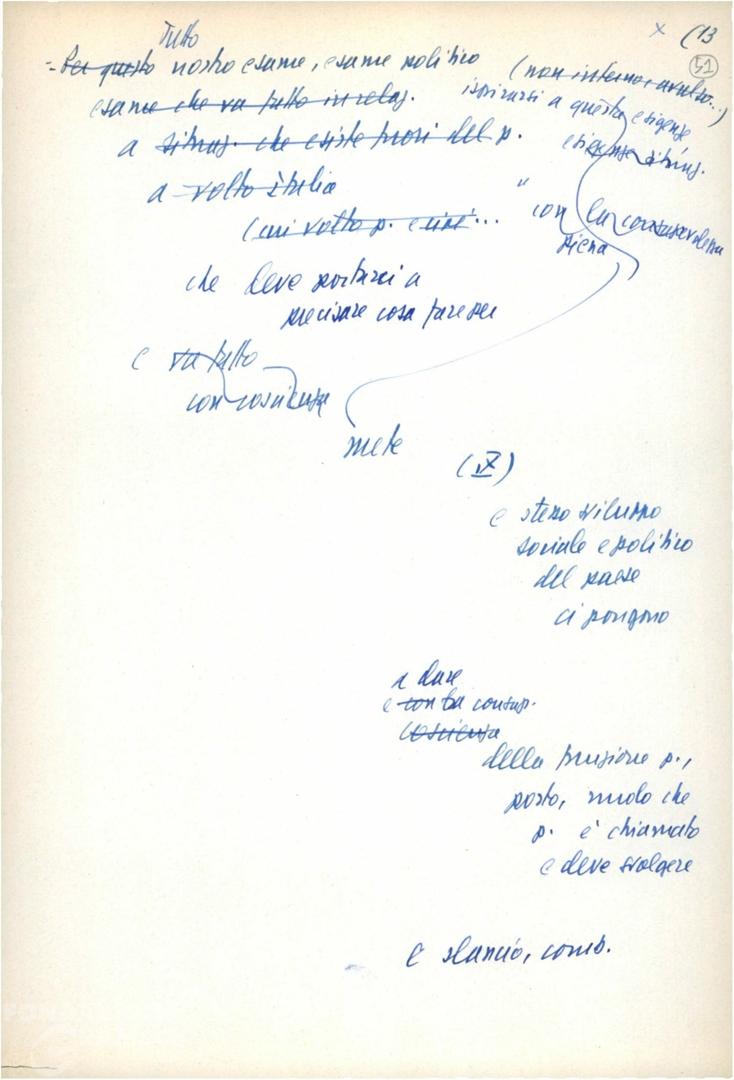 x (13
51
Tutto
- Per questo nostro esame, esame politico (non interno, avulso...)
esame che va tutto in relaz. ispirarsi a questa esigenza
a situaz. che esiste fuori del p. esigenze situaz.
a volto Italia
(cui volto p. e ... " con la consapevolezza
piena
che deve portarci a
precisare cosa fare per
e va fatto
con coscienza
mete
(V)
e stesso sviluppo
sociale e politico
del paese
ci pongono
a dare
e con la consap.
coscienza
della funzione p.,
posto, ruolo che
p. è chiamato
e deve svolgere
e slancio, comb.